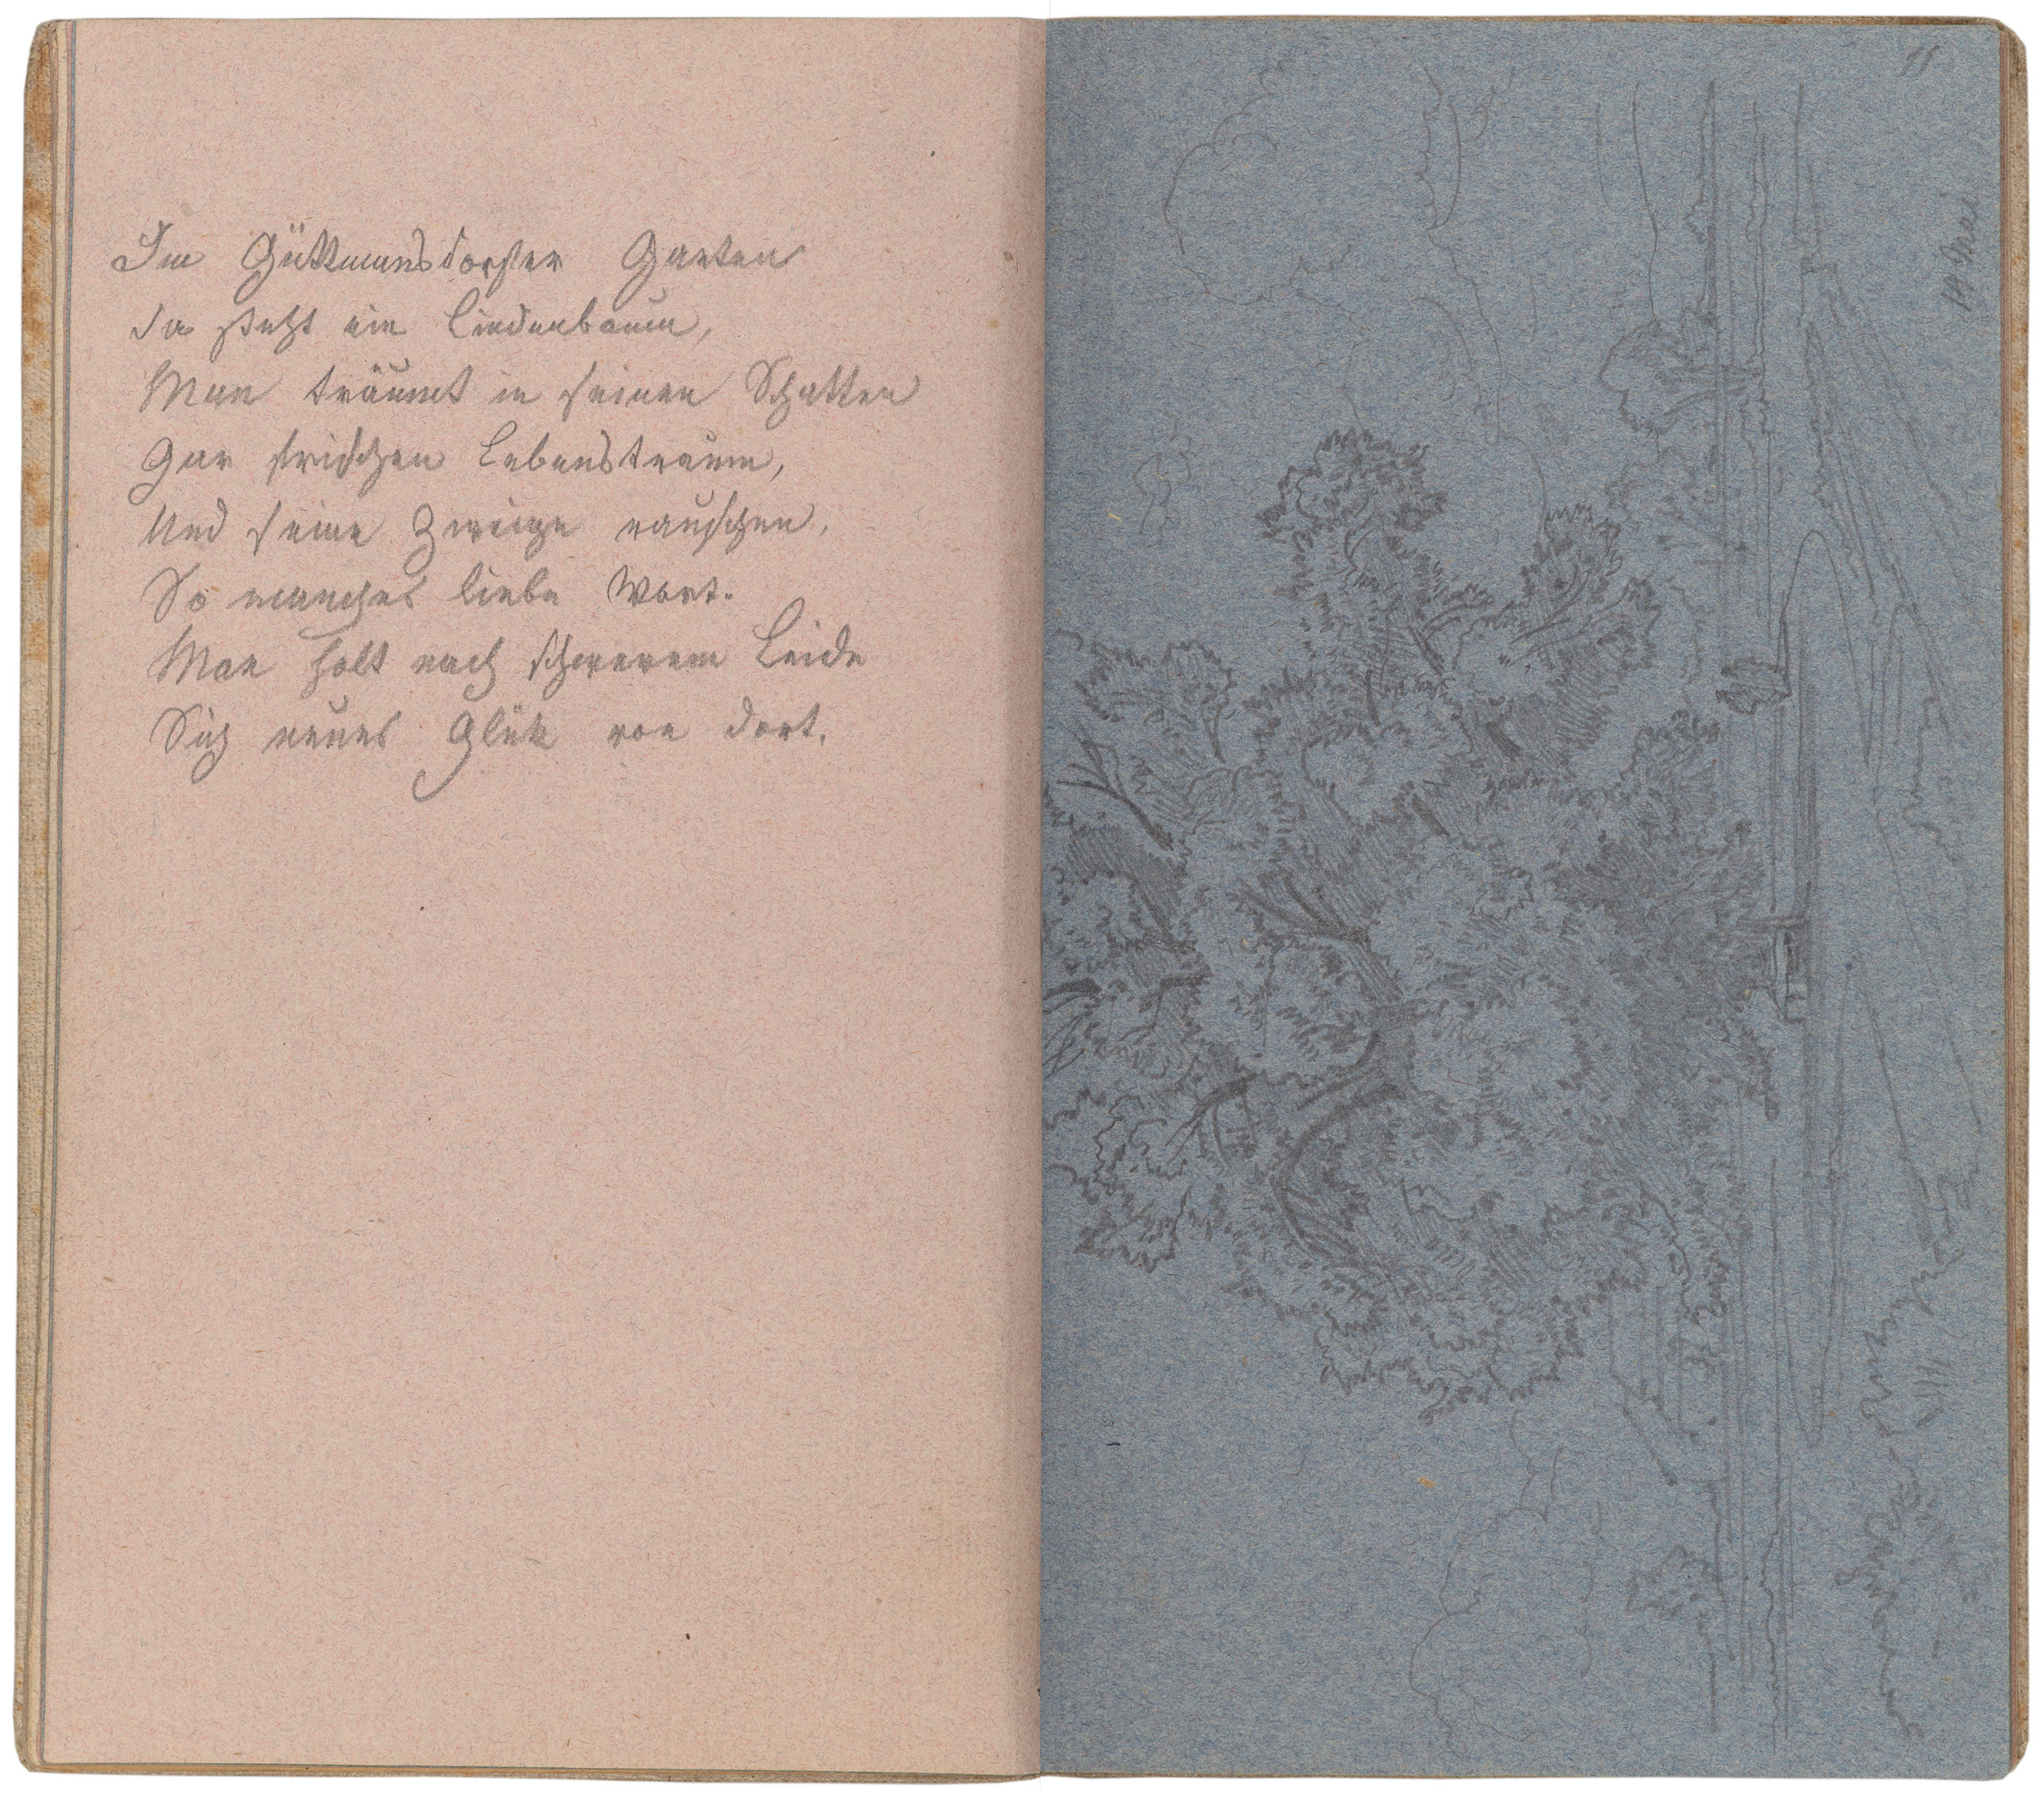 Im Güttmansdorfer Garten
da steht ein Lindenbaum,
Man träumt in seinen Schatten
Gar frischen Lebenstraum,
Und seine Zweige rauschen,
So manches liebe Wort.
Man holt nach schwerem Leide
Sich neues Glük von dort.
11
19 Mai